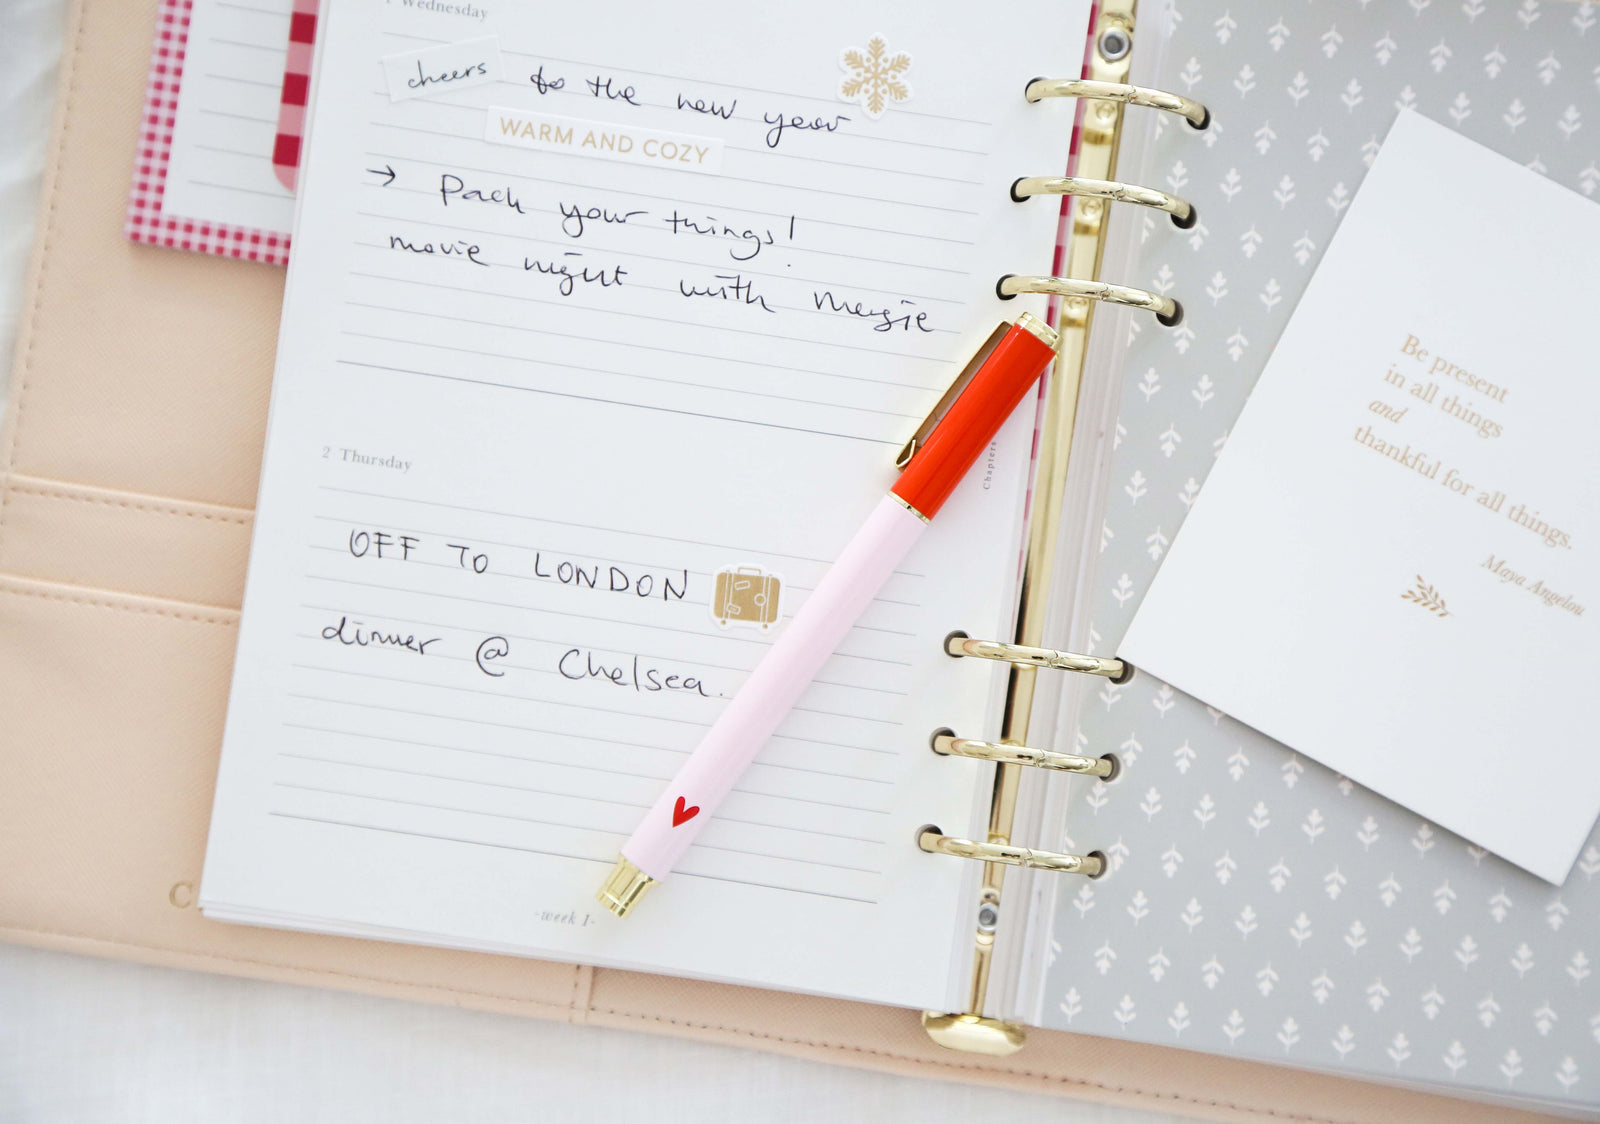 1 Wednesday
cheers to the new year
WARM AND COZY
→ Pack your things!
movie night with
2 Thursday
OFF TO LONDON
dinner @ Chelsea.
-week 1-
Chapters
C
Be present
in all things
and
thankful for all things.
Maya Angelou